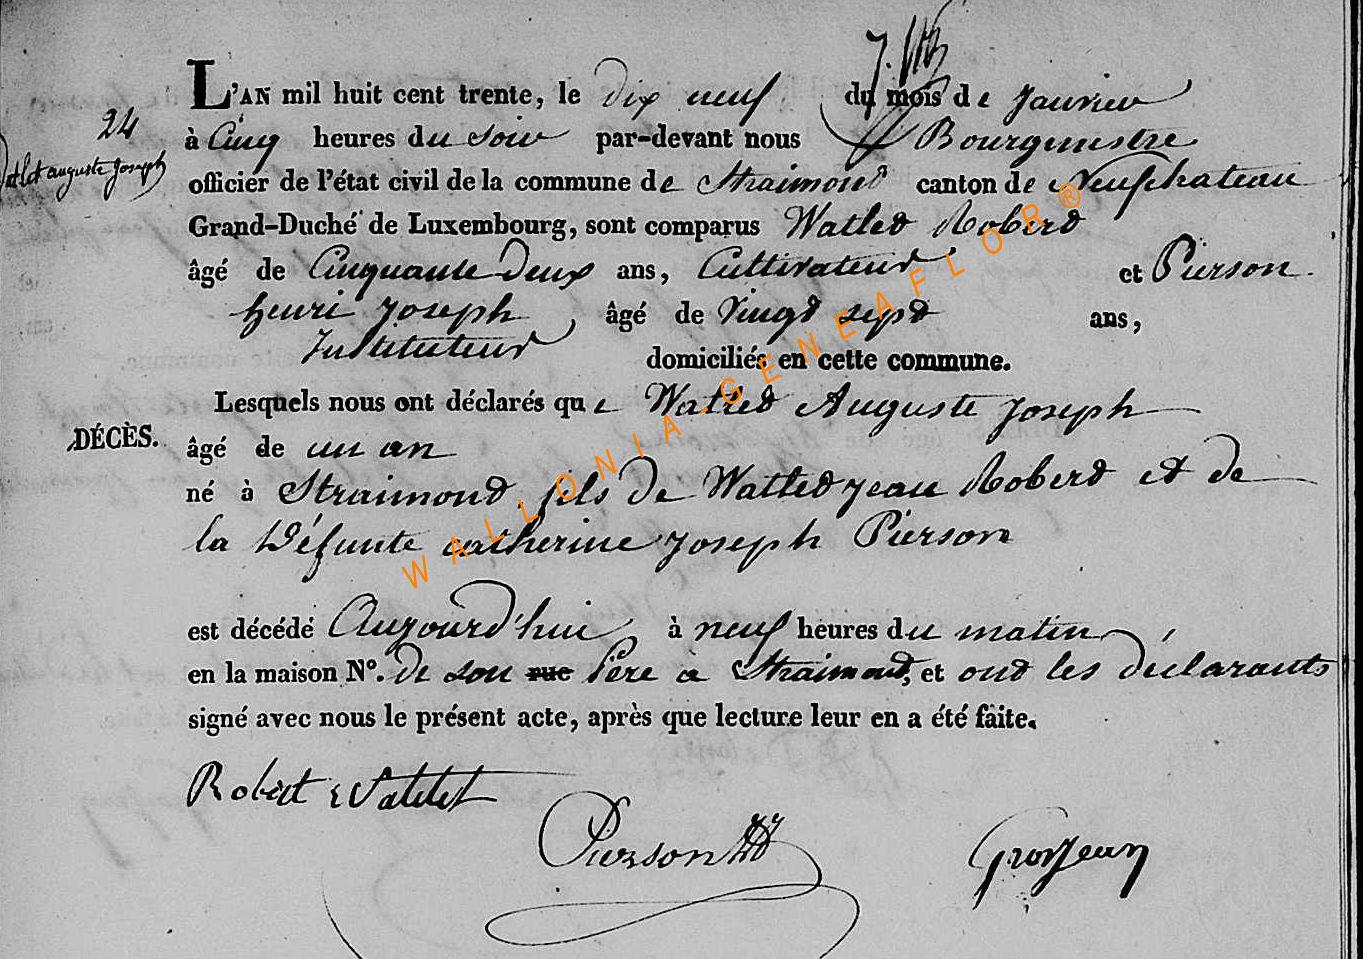 L'AN mil huit cent trente, le dix neuf du mois de Janvier
24
à Cinq heures du soir par-devant nous Bourgmestre
Watlet auguste Joseph
officier de l'état civil de la commune de Straimond canton de Neufchateau
Grand-Duché de Luxembourg, sont comparus Watled Roberd
âgé de Cinquante Deux ans, Cultivateur et Pierson
henri Joseph âgé de Vingd sepd ans,
Instituteur domiciliés en cette commune.
Lesquels nous ont déclarés que Watled Auguste Joseph
DÉCÈS.
âgé de un an
né à Straimond fils de Watled jean Roberd et de
la Défunte catherine Joseph Pierson
est décédé Aujourd'hui à neuf heures du matin
en la maison N°. De son rue Père a Straimond, et ond les déclarants
signé avec nous le présent acte, après que lecture leur en a été faite.
Robert Watlet
Pierson
Grosjean
WALLONIA-GENEAFLOR®